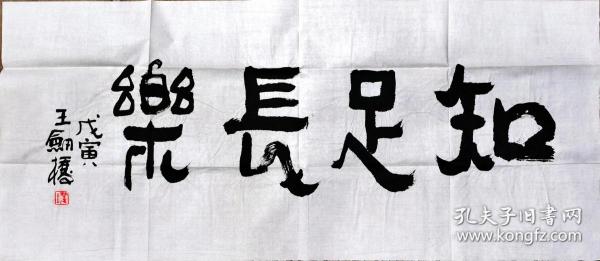 知足長樂
戊寅
王劍橋
孔夫子旧书网
www.kongfz.com